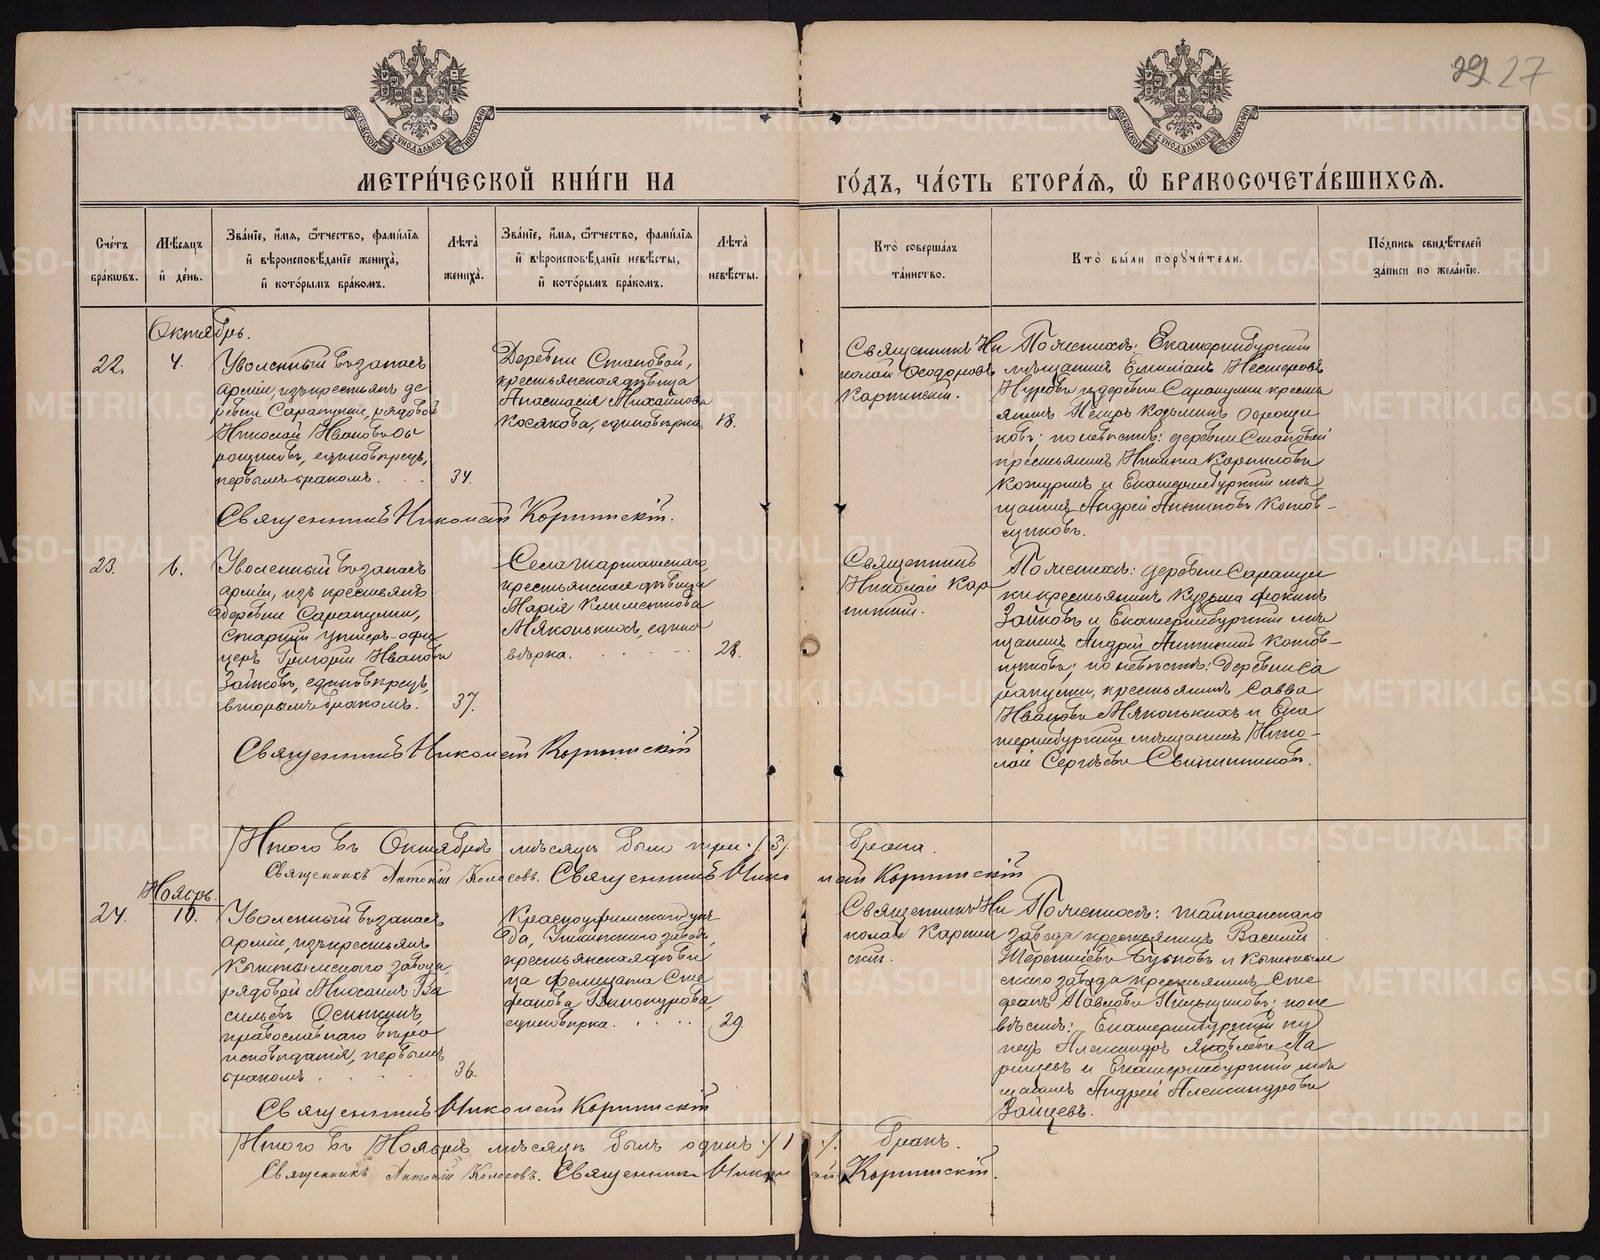 29 27
МОСКОВСКОЙ СУНОДАЛЬНОЙ ТИПОГРАФІИ
МОСКОВСКОЙ СУНОДАЛЬНОЙ ТИПОГРАФІИ
МЕТРИ́ЧЕСКОЙ КНИ́ГИ НА ГО́ДЪ, ЧА́СТЬ ВТОРА́Я, Ѡ БРАКОСОЧЕТА́ВШИХСЯ.
Сче́тъ бра́кѡвъ.
Мѣ́сяцъ и де́нь.
Зва́нїе, и́мя, ѻ́тчество, фами́лїя и вѣроисповѣ́данїе жениха̀, и кото́рымъ бра́комъ.
Лѣта̀ жениха̀.
Зва́нїе, и́мя, ѻ́тчество, фами́лїя и вѣроисповѣ́данїе невѣ́сты, и кото́рымъ бра́комъ.
Лѣта̀ невѣ́сты.
Кто̀ соверша́лъ та́инство.
Кто̀ бы́ли порꙋчи́тели.
По́дпись свидѣ́телей за́писи по жела́нїю.
Октябрь.
22.
4.
Уволенный въ запасъ
арміи, изъ крестьянъ де
ревни Сарапулки, рядовой
Николай Ивановъ
единовѣрецъ,
первымъ бракомъ.
34.
Деревни Становой,
крестьянская дѣвица
Анастасія Михайлова
Косякова, единовѣрка
18.
Священникъ Ни
колай Ѳеодоровъ
Карпинскій.
По женихѣ: Екатеринбургскій
мѣщанинъ Емиліанъ Нестеровъ
и деревни Сарапулки кресть
янинъ Козьминъ
по невѣстѣ: деревни Становой
крестьянинъ Никита Корниловъ
и Екатеринбургскій мѣ
щанинъ Андрей Антиповъ Котов
щиковъ.
Священникъ Николай Карпинскій.
23.
6.
Уволенный въ запасъ
арміи, изъ крестьянъ
деревни Сарапулки,
старшій унтеръ-офи
церъ Григорій Ивановъ
Зайковъ, единовѣрецъ,
вторымъ бракомъ.
37.
Села Шарташскаго
крестьянская дѣвица
Марія Климентова
Мяконькихъ, едино
вѣрка.
28.
Священникъ
Николай Кар
пинскій.
По женихѣ: деревни Сарапул
ки крестьянинъ Кузьма Фокинъ
Зайковъ и Екатеринбургскій мѣ
щанинъ Андрей Антиповъ Котов-
щиковъ; по невѣстѣ: деревни Са
рапулки, крестьянинъ Савва
Ивановъ Мяконькихъ и Ека
теринбургскій мѣщанинъ Нико-
лай Сергѣевъ
Священникъ Николай Карпинскій
Итого въ Октябрѣ мѣсяцѣ было три /3/ брака.
Священникъ Антоній Колосовъ. Священникъ Николай Карпинскій
Ноябрь.
24.
10.
Уволенный въ запасъ
арміи, изъ крестьянъ
Кыштымскаго завода,
рядовой Михаилъ Ва
сильевъ Осинкинъ,
православнаго вѣро
исповѣданія, первымъ
бракомъ.
36.
Красноуфимскаго уѣз
да, завода,
крестьянская дѣви
ца Фелицата Сте
фанова Винокурова,
единовѣрка.
29.
Священникъ Ни
колай Карпин
скій.
По женихѣ: Шайтанскаго
завода крестьянинъ Василій
Терентьевъ и Кыштым
скаго завода крестьянинъ Сте
фанъ Павловъ по не
вѣстѣ: Екатеринбургскій ку
пецъ Александръ Яковлевъ Ла
рицевъ и Екатеринбургскій мѣ
щанинъ Андрей Александровъ
Зайцевъ.
Священникъ Николай Карпинскій
Итого въ Ноябрѣ мѣсяцѣ былъ одинъ /1/. бракъ.
Священникъ Антоній Колосовъ. Священникъ Николай Карпинскій.
METRIKI.GASO-URAL.RU